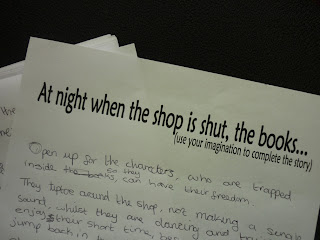 At night when the shop is shut, the books...
(use your imagination to complete the story)
Open up for the characters, who are trapped
so they
inside the books, can have their freedom.
They tiptoe around the shop, not making a
sound, whilst they are dancing and
enjoy their short time,
jump back in